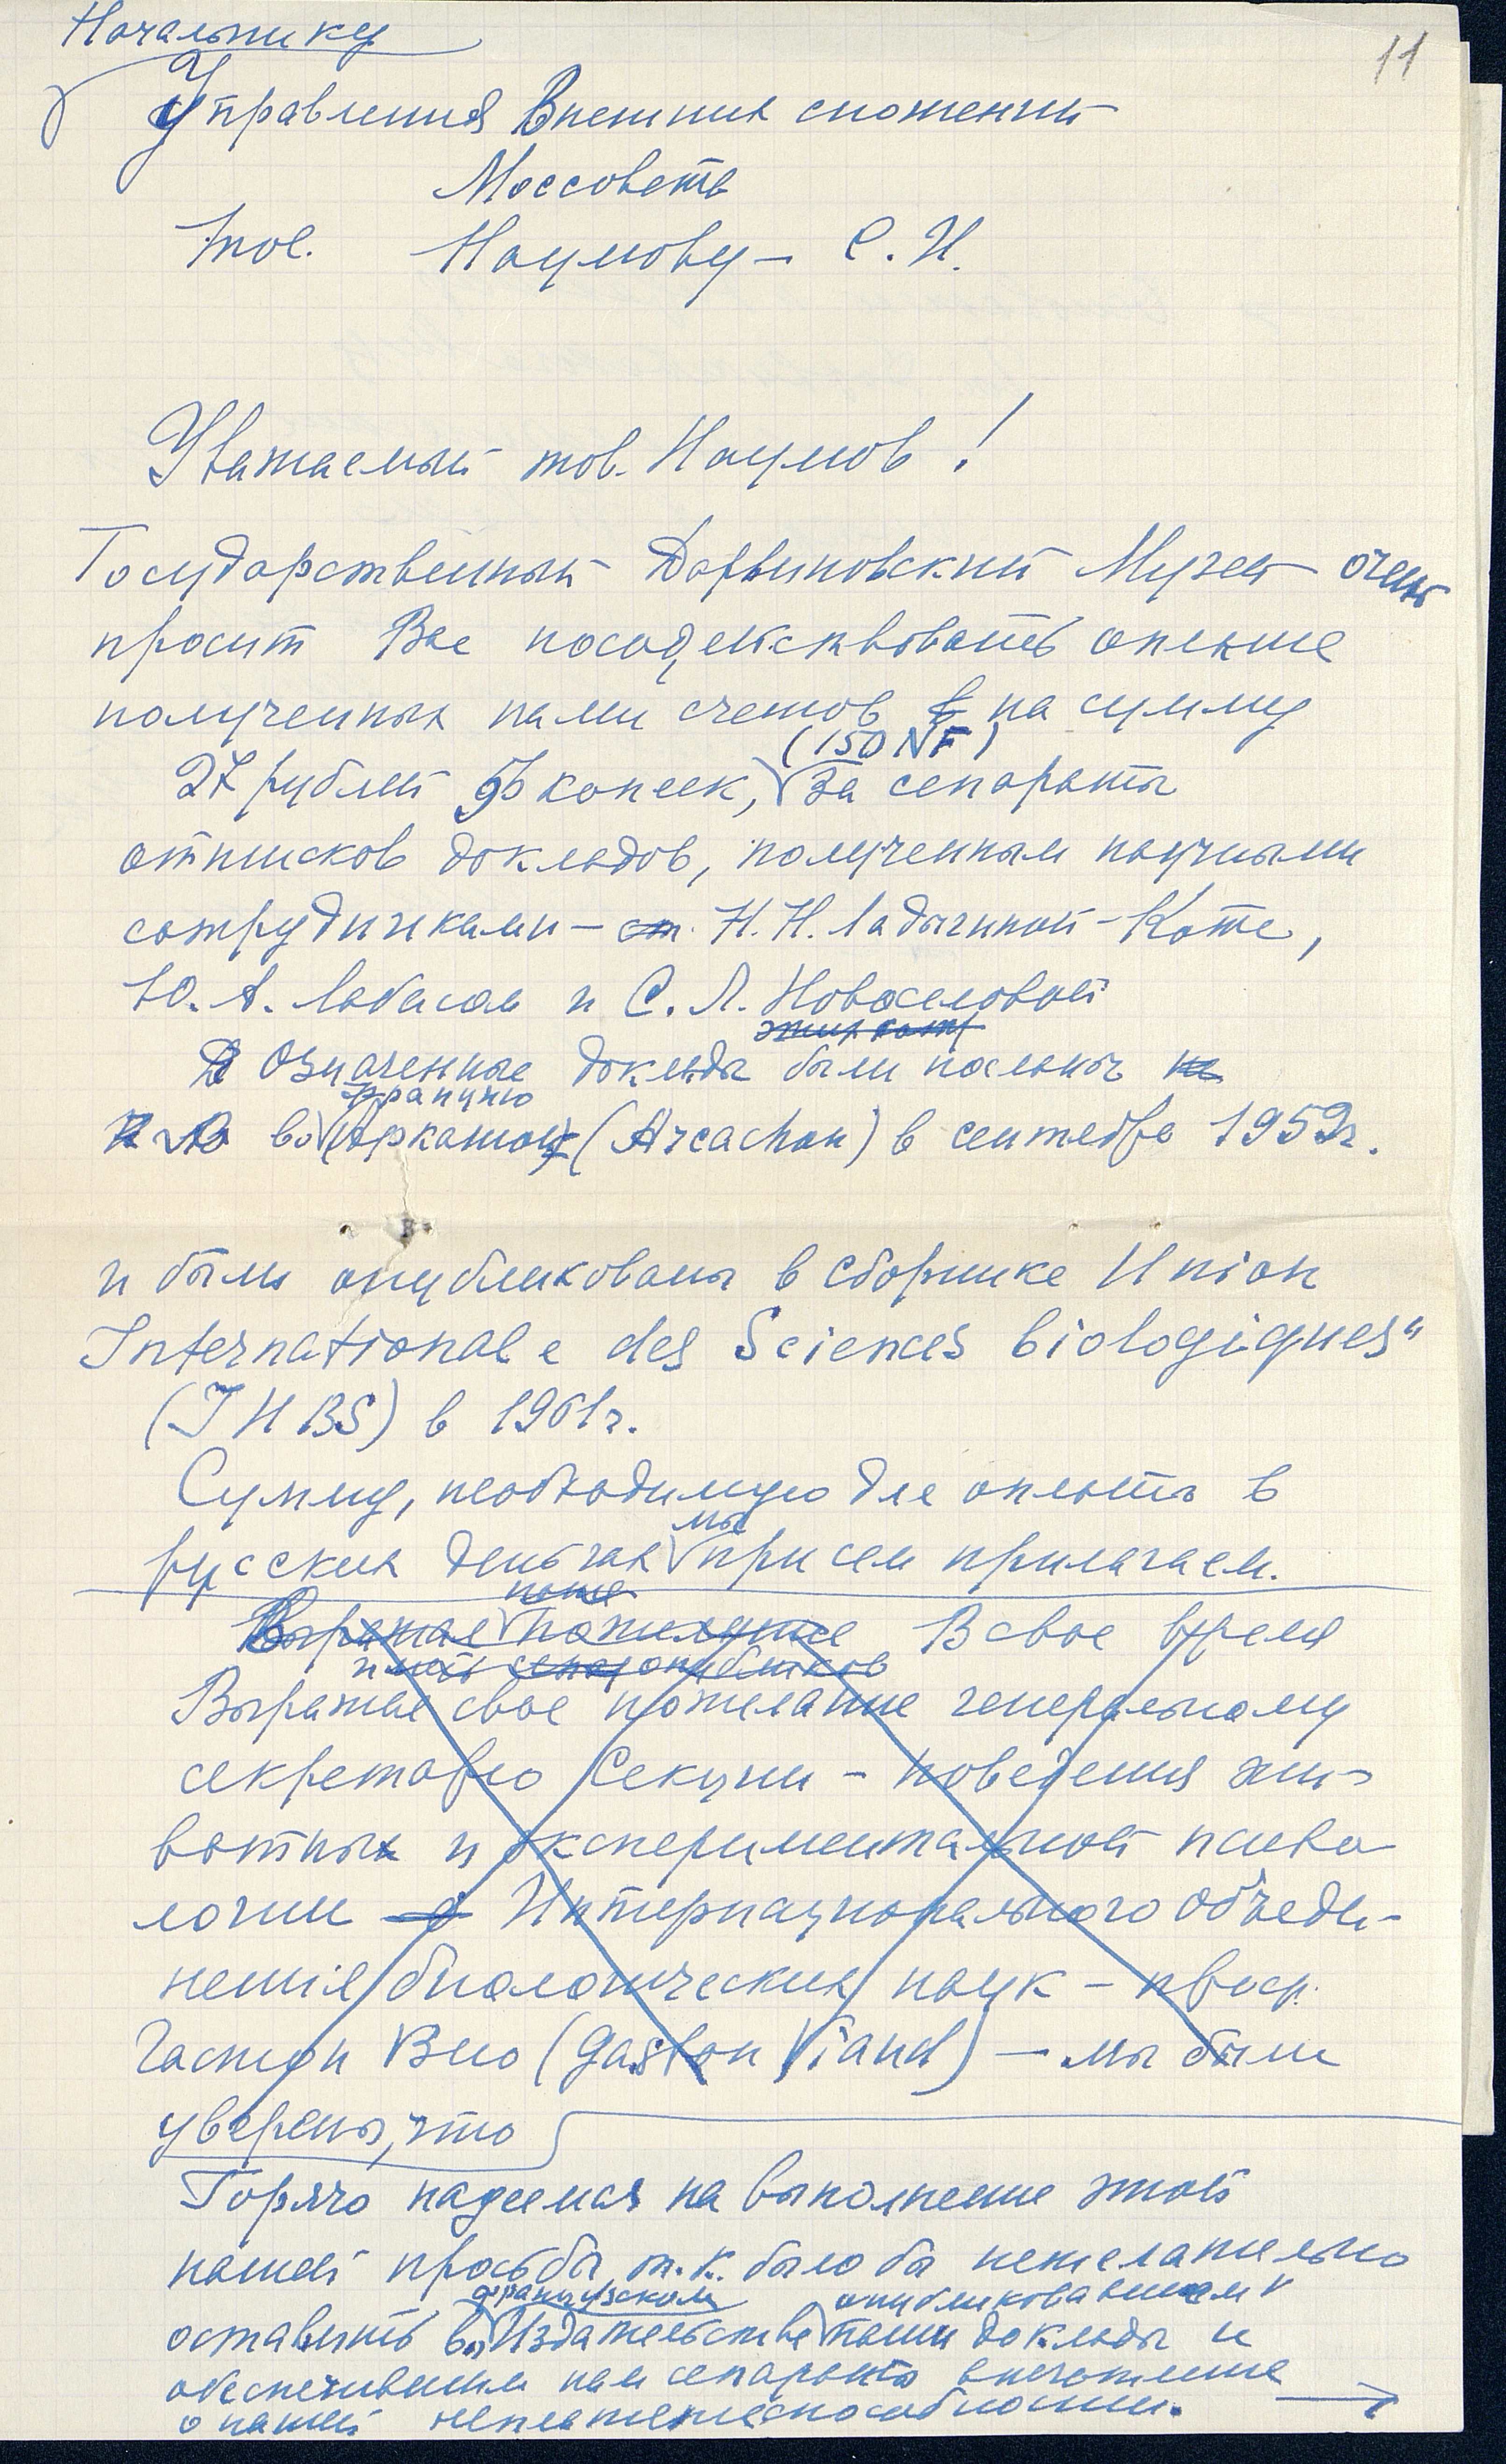 11
Начальнику
Управления Внешних сношений
Моссовета
тов. Наумову С. И.
Уважаемый тов. Наумов!
Государственный Дарвиновский Музей очень
просит Вас посодействовать оплате
полученных нами счетов на сумму
(150 NF)
27 рублей копеек, за сепараты
оттисков докладов, полученным научными
сотрудниками – Н. Н. Ладыгиной-Котс,
Ю. А. Лабасом и С. Л. Новоселовой
этих
Означенные доклады были посланы
Францию
во (Аркашон) (Arcachon) в сентябре 1959г.
и были опубликованы в сборнике Union
Internationale des Sciences biologiques"
(IUBS) в 1961г.
Сумму, необходимую для оплаты в
мы
русских деньгах при сем прилагаем.
наше
Выражая пожелание В свое время
иметь опубликов
Выражая свое пожелание генеральному
секретарю Секции – поведения жи-
вотных и экспериментальной психо
логии Интернационального объеди-
нения биологических наук – проф.
Гастон Вио (Gaston Viaud) – мы были
уверены, что
Горячо надеемся на выполнение этой
нашей просьбы, т.к. было бы нежелательно
французском опубликовавшем
оставить во Издательстве наши доклады и
обеспечившем нам сепараты впечатление
о нашей неплатежеспособности.